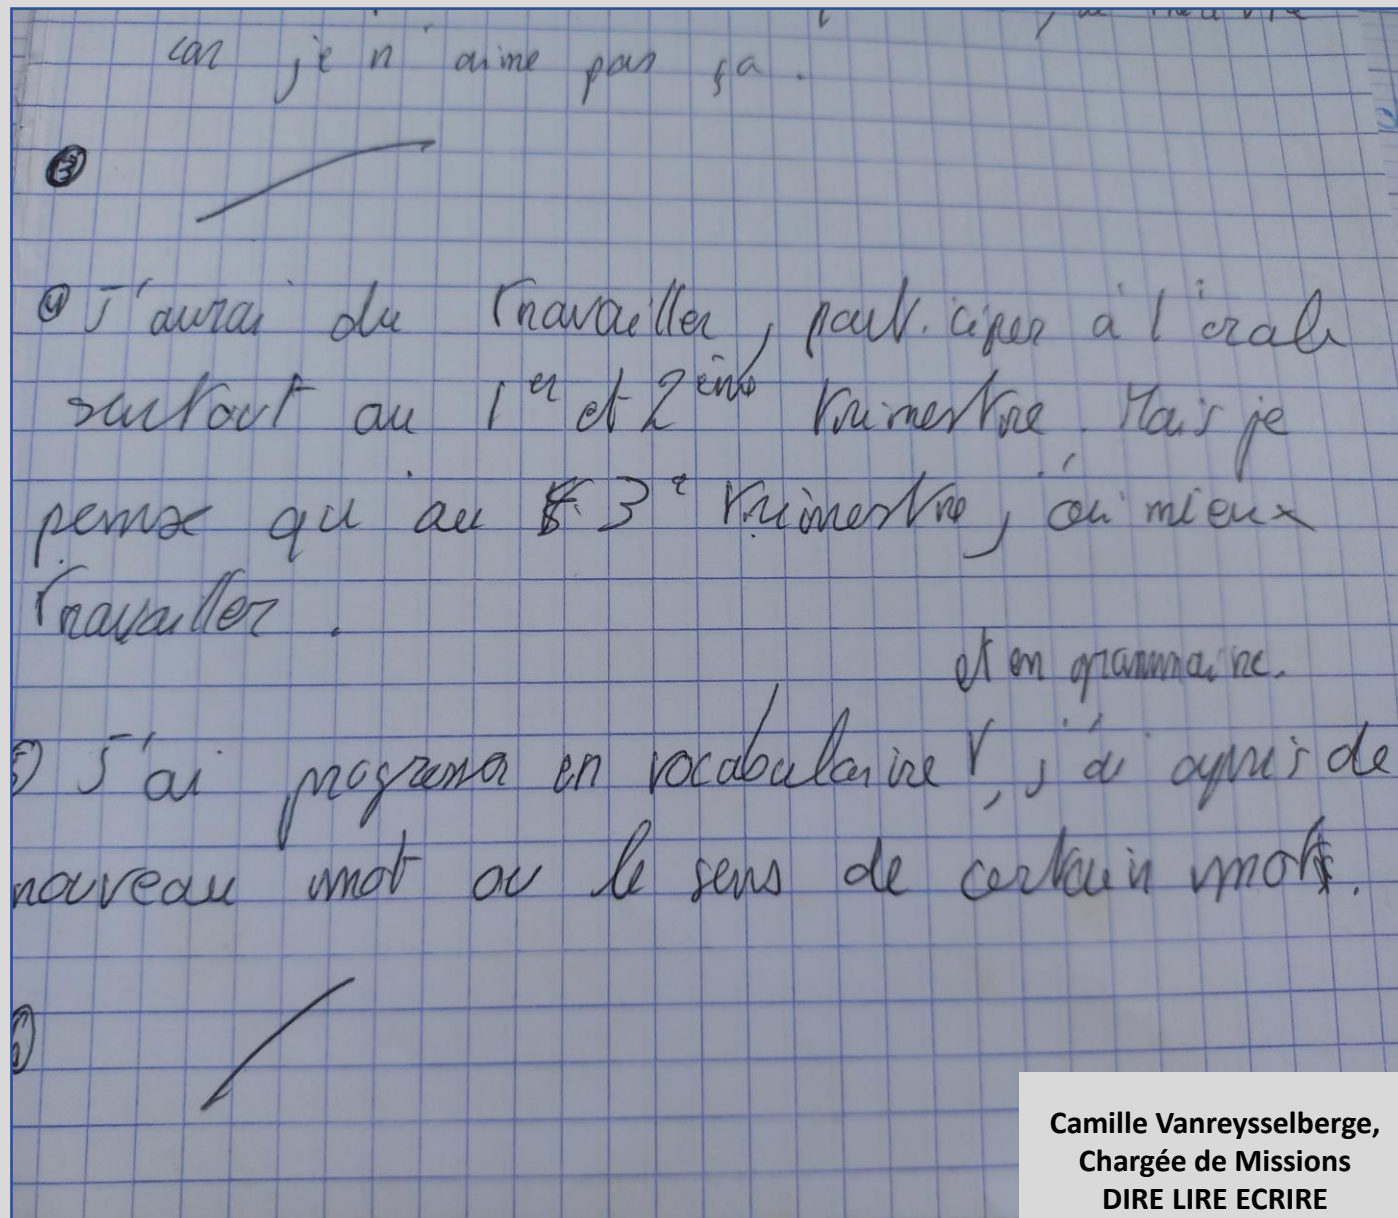 car je n'aime pas ça.
③
④ J'aurai du travailler, participer à l'orale
surtout au 1er et 2ème trimestre. Mais je
pense qu'au 3e trimestre, j'ai mieux
travailler.
et en grammaire.
5) J'ai progresser en vocabulaire V, j'ai appris de
nouveau mot ou le sens de certain mots.
Camille Vanreysselberge,
Chargée de Missions
DIRE LIRE ECRIRE